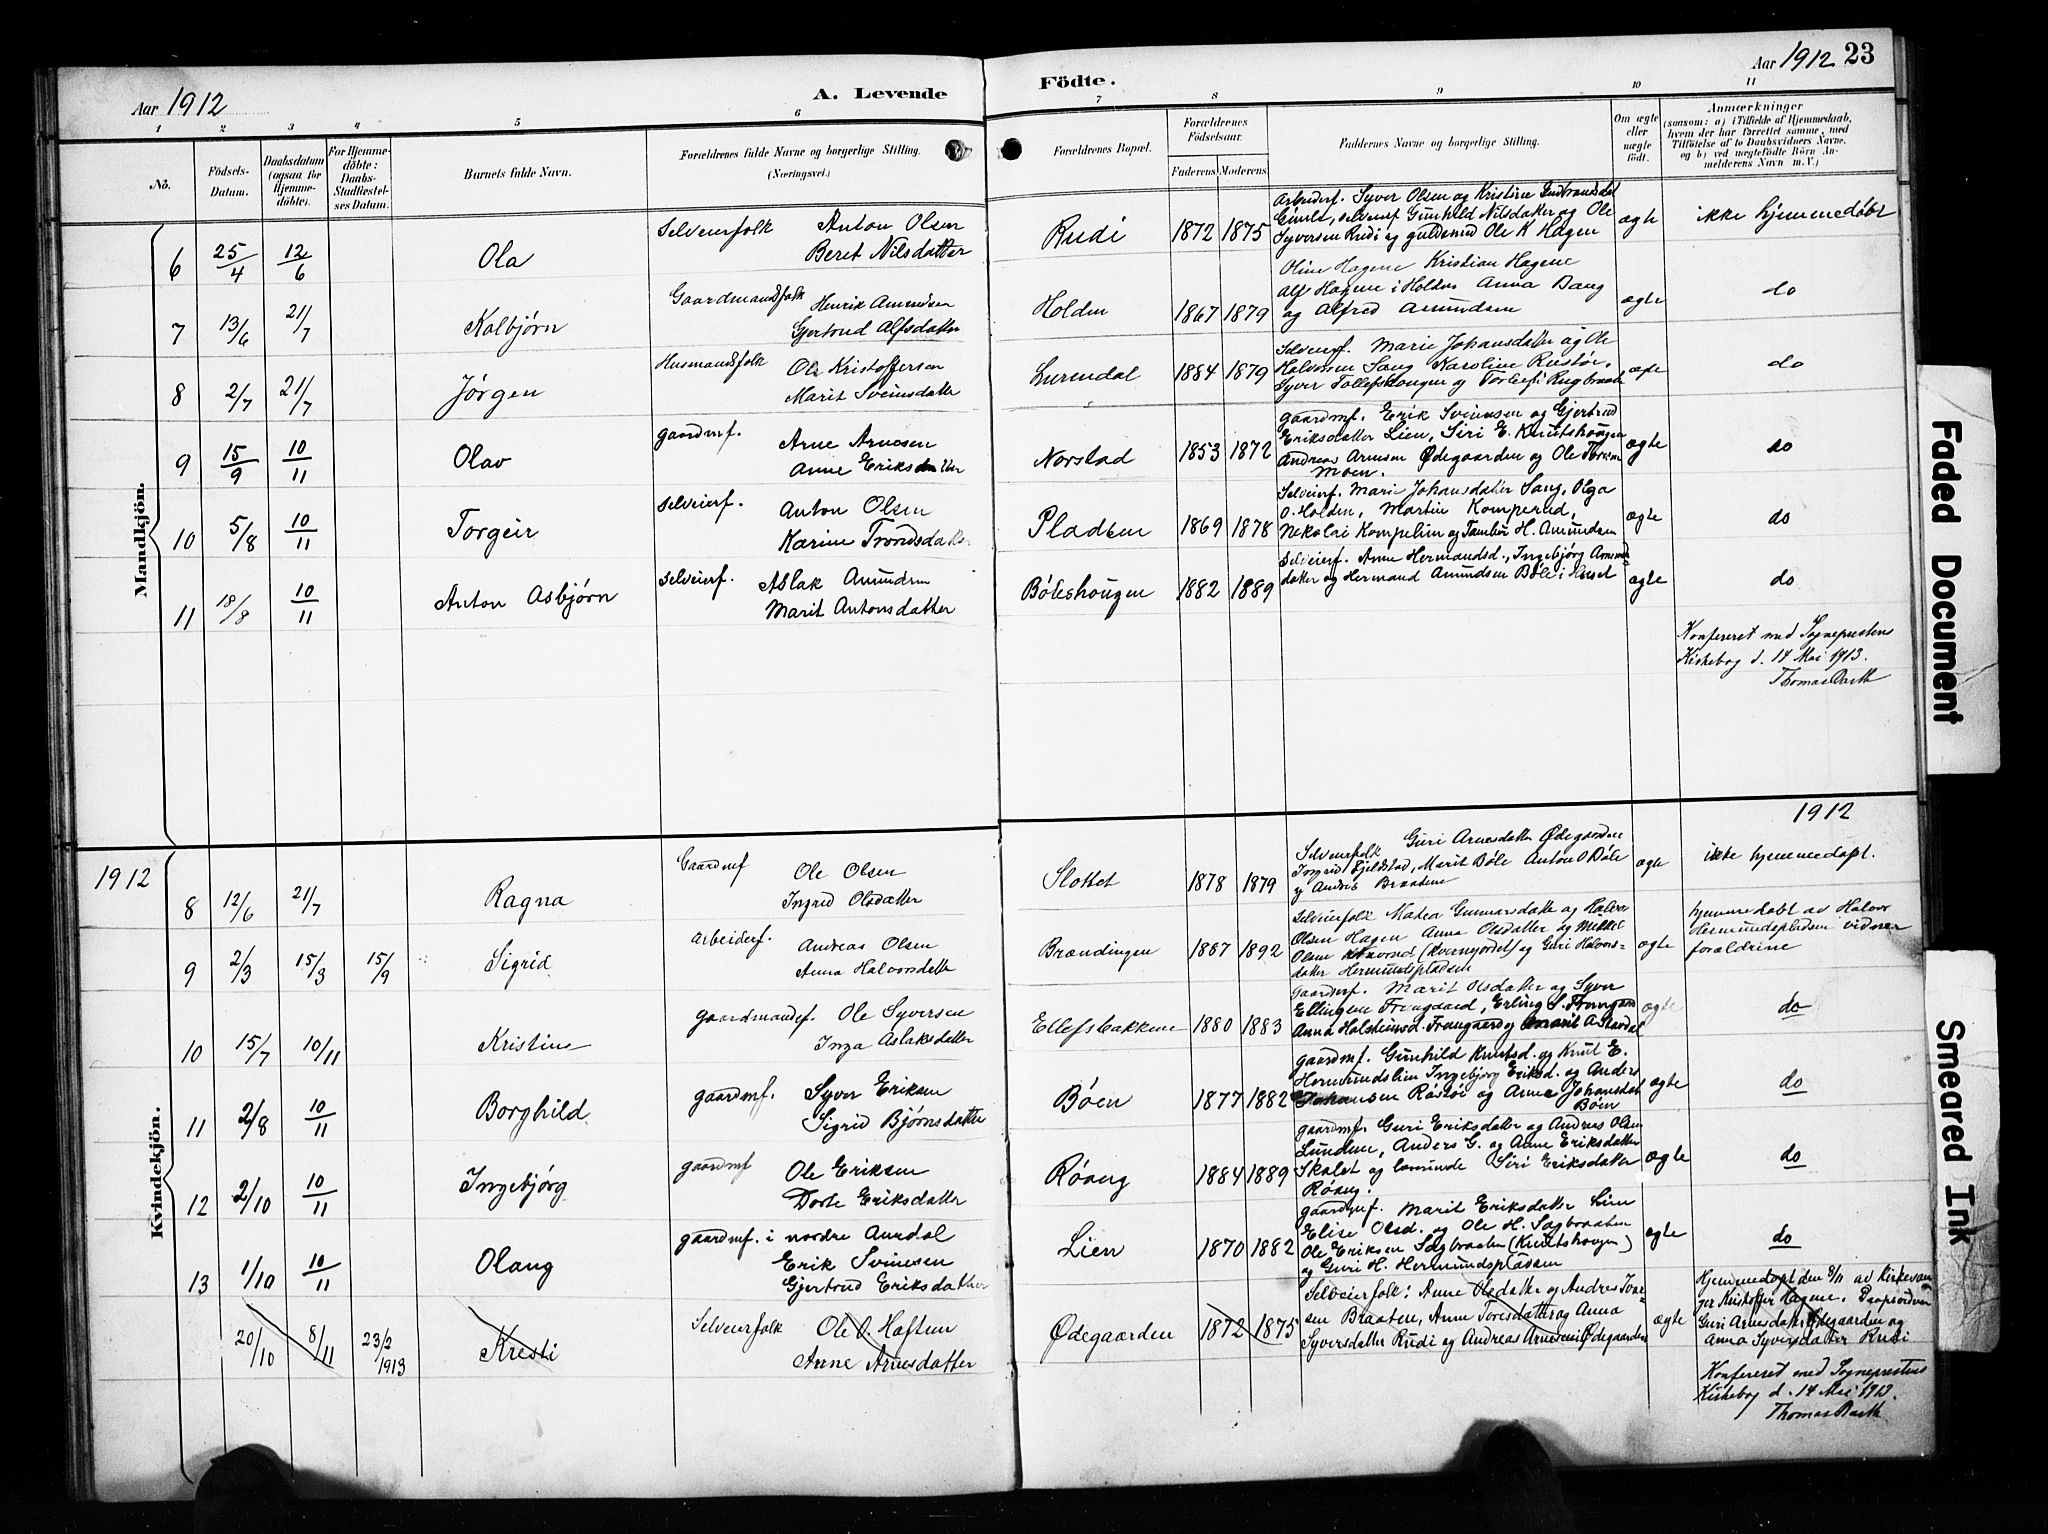 Aar 1912
A. Levende
Födte.
Aar 1912 23
1 2 3 4 5 6 7 8 9 10 11
No.
Födsels-
Datum.
Daabsdatum
(ogsaa for
Hjemme-
döbte).
For Hjemme-
döbte:
Daabs-
Stadfæstel-
ses Datum.
Barnets fulde Navn.
Forældrenes fulde Navne og borgerlige Stilling.
(Næringsvei.)
Forældrenes Bopæl.
Forældrenes
Födselsaar.
Faderens Moderens
Faddernes Navne og borgerlig Stilling.
Om ægte
eller
uægte
födt.
Anmærkninger
(saasom: a) i Tilfælde af Hjemmedaab,
hvem der har forrettet samme, med
Tilföielse af to Daabsvidners Navne,
og b) ved uægtefödte Börn An-
melderens Navn m. V.)
Mandkjön.
6 25/4 12/6 Ola Selveierfolk Anton Olsen
Beret Nilsdatter
Rudi 1872 1875
Arbeiderf. Syver Olsen og Kristine Gudbrandsdat
Gimle, selveierf Gunhild Nilsdatter og Ole
Syversen Rudi og guldsmed Ole K Hagen
ægte ikke hjemmedøbt
7 13/6 21/7 Kolbjørn Gaardmandsfolk Henrik Amundsen
Gjertrud Alfsdatter
Holden 1867 1879
Oline Hagene Kristian Hagene
Alf Hagene i Holden Anna Bang
og Alfred Amundsen
ægte do
8 2/7 21/7 Jørgen Husmandsfolk Ole Kristoffersen
Marit Sveinsdatter
Lurendal 1884 1879
Selveierf. Marie Johansdatter og Ole
Halvorsen Sang Karoline Rustøe,
Syver Tollefshougen og Torleif Rugbraate
ægte do
9 15/9 10/11 Olav gaardmf. Arne Arnesen
Anne Eriksdatter
Norstad 1853 1872
gaardmf. Erik Sveinsen og Gjertrud
Eriksdatter Lien, Siri E. Knutshougen
Andreas Arnesen Ødegaarden og Ole
Moen.
ægte do
10 5/8 10/11 Torgeir selveierf. Anton Olsen
Karine Trondsdatter
Pladsen 1869 1878
Selveierf. Marie Johansdatter Sang, Olga
O. Holden, Martin Komperud,
Nikolai Kompelien og Tambur H. Amundsen
ægte do
11 18/8 10/11 Anton Asbjørn selveierf. Aslak Amundsen
Marit Antonsdatter
Bøleshougen 1882 1889
Selveierf. Anne Hermandsd., Ingebjørg Arnes-
datter og Hermand Amundsen Bøle i
ægte do
Konfereret med Sogneprestens
Kirkebog d. 14 Mai 1913.
Thomas Barth
1912
1912
Kvindekjön.
8 12/6 21/7 Ragna Gaardmf Ole Olsen
Ingrid Olsdatter
Slottet 1878 1879
Guri Arnesdatter Ødegaarden
Selveierfolk
Ingrid Fjeldstad, Marit Bøle Anton O Bøle
og Andris Braatene
ægte ikke hjemmedøpt.
9 2/3 15/3 15/9 Sigrid Arbeiderf. Andreas Olsen
Anna Halvorsdatter
Brændingen 1887 1892
Selveierfolk Matea Gunnarsdatter og Halvor
Olsen Hagen Anna Olsdatter og Mikkel
Olsen (Kvernjordet) og Guri Halvors-
datter Hermundspladsen
ægte hjemmedøbt av Halvor
Hermundspladsen vidner
forældrine
10 15/7 10/11 Kristine gaardmandsf. Ole Syversen
Inga Aslaksdatter
Ellefsbakkene 1880 1883
Gaardmf. Marit Olsdatter og Syver
Ellingene Frengaard, Erling S. Frengaard
Anna Halsteinsd. Frangaard og Marit
ægte do
11 2/8 10/11 Borghild gaardmf. Syver Eriksen
Sigrid Bjørnsdatter
Bøen 1877 1882
gaardmf. Gunhild Knutsd. og Knut E.
Hermundslien Ingebjørg Eriksd. og Anders
Johansen Røstøe og Arne Johansdat
Bøen
ægte do
12 2/10 10/11 Ingebjørg gaardmf Ole Eriksen
Dorte Eriksdatter
Røang 1884 1889
gaardmf. Guri Eriksdatter og Andreas Olsen
Lundene, Anders G. og Anne Eriksdatter
Skalet og Siri Eriksdatter
Røang.
ægte do
13 1/10 10/11 Olaug gaardmf. i nordre Aurdal
Erik Sveinsen
Gjertrud Eriksdatter
Lien 1870 1882
gaardmf. Marit Eriksdatter Lien
Elise Olsd. og Ole H. Sagbraaten
Ole Eriksen Sagbraaten (Knutshougen)
og Guri H. Hermundspladsen
ægte do
20/10 8/11 23/2 1913 Kresti Selveierfolk Ole O. Haften
Anne Arnesdatter
Ødegaarden 1872 1875
Selveierfolk: Anne Olsdatter og Andres Ivar-
sen Braaten, Anne Toresdatter og Anna
Syversdatter Rudi og Andreas Arnesen Ødegaarden
ægte Hjemmedøpt den 8/11 av Kirkesan-
ger Kristoffer Hagene. Daapsvidner
Guri Arnesdatter Ødegaarden og
Anna Syversdatter Rudi
Konfereret med Sogneprestens
Kirkebog d. 14 Mai 1913.
Thomas Barth
Faded Document
Smeared Ink